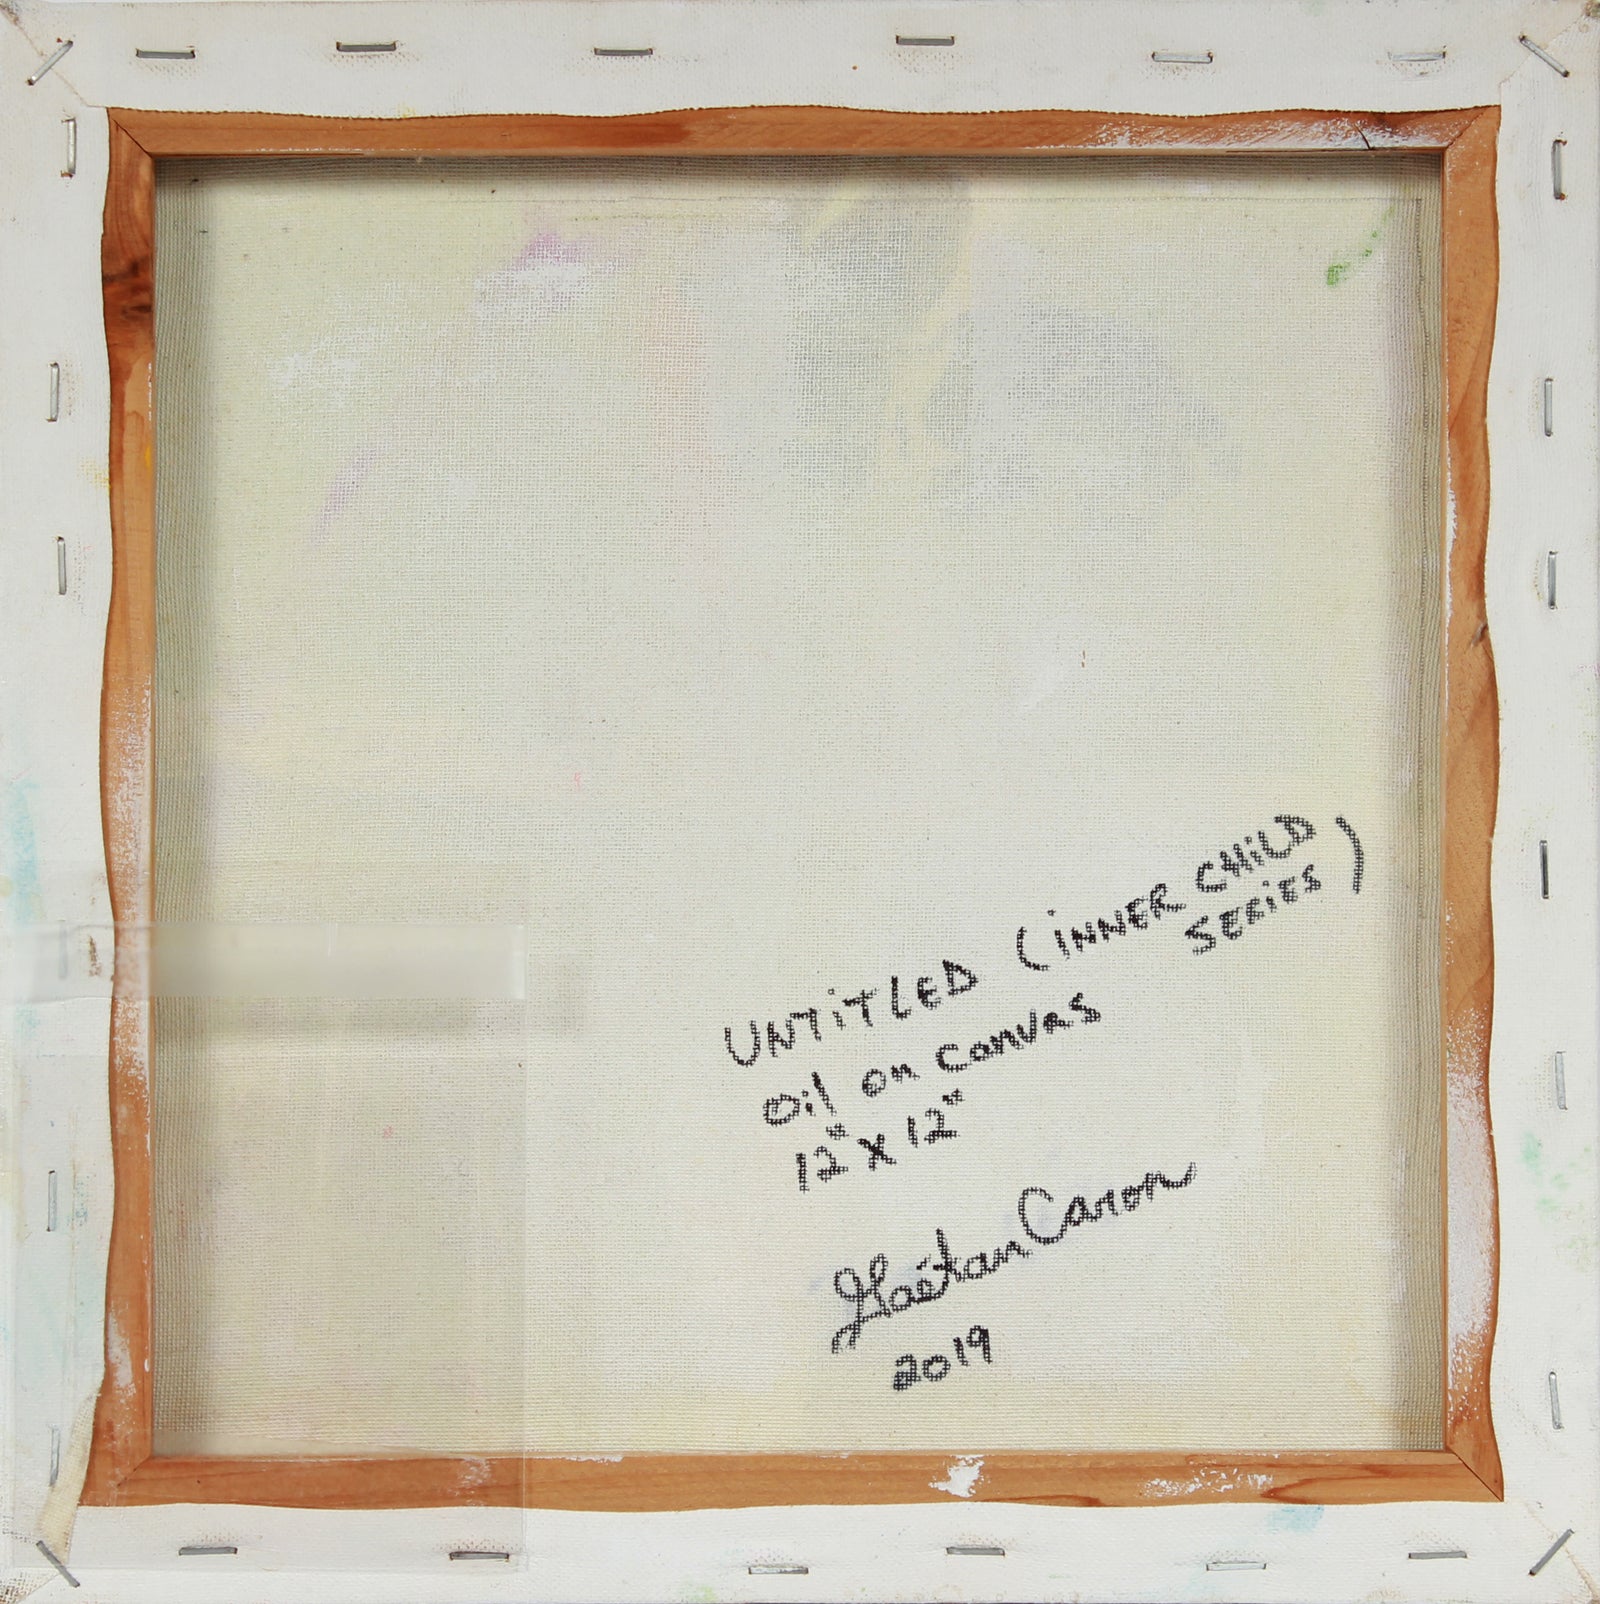 UNTiTLED (iNNER CHiLD
SERiES)
Oil on canvas
12" X 12"
Gaëtan Caron
2019